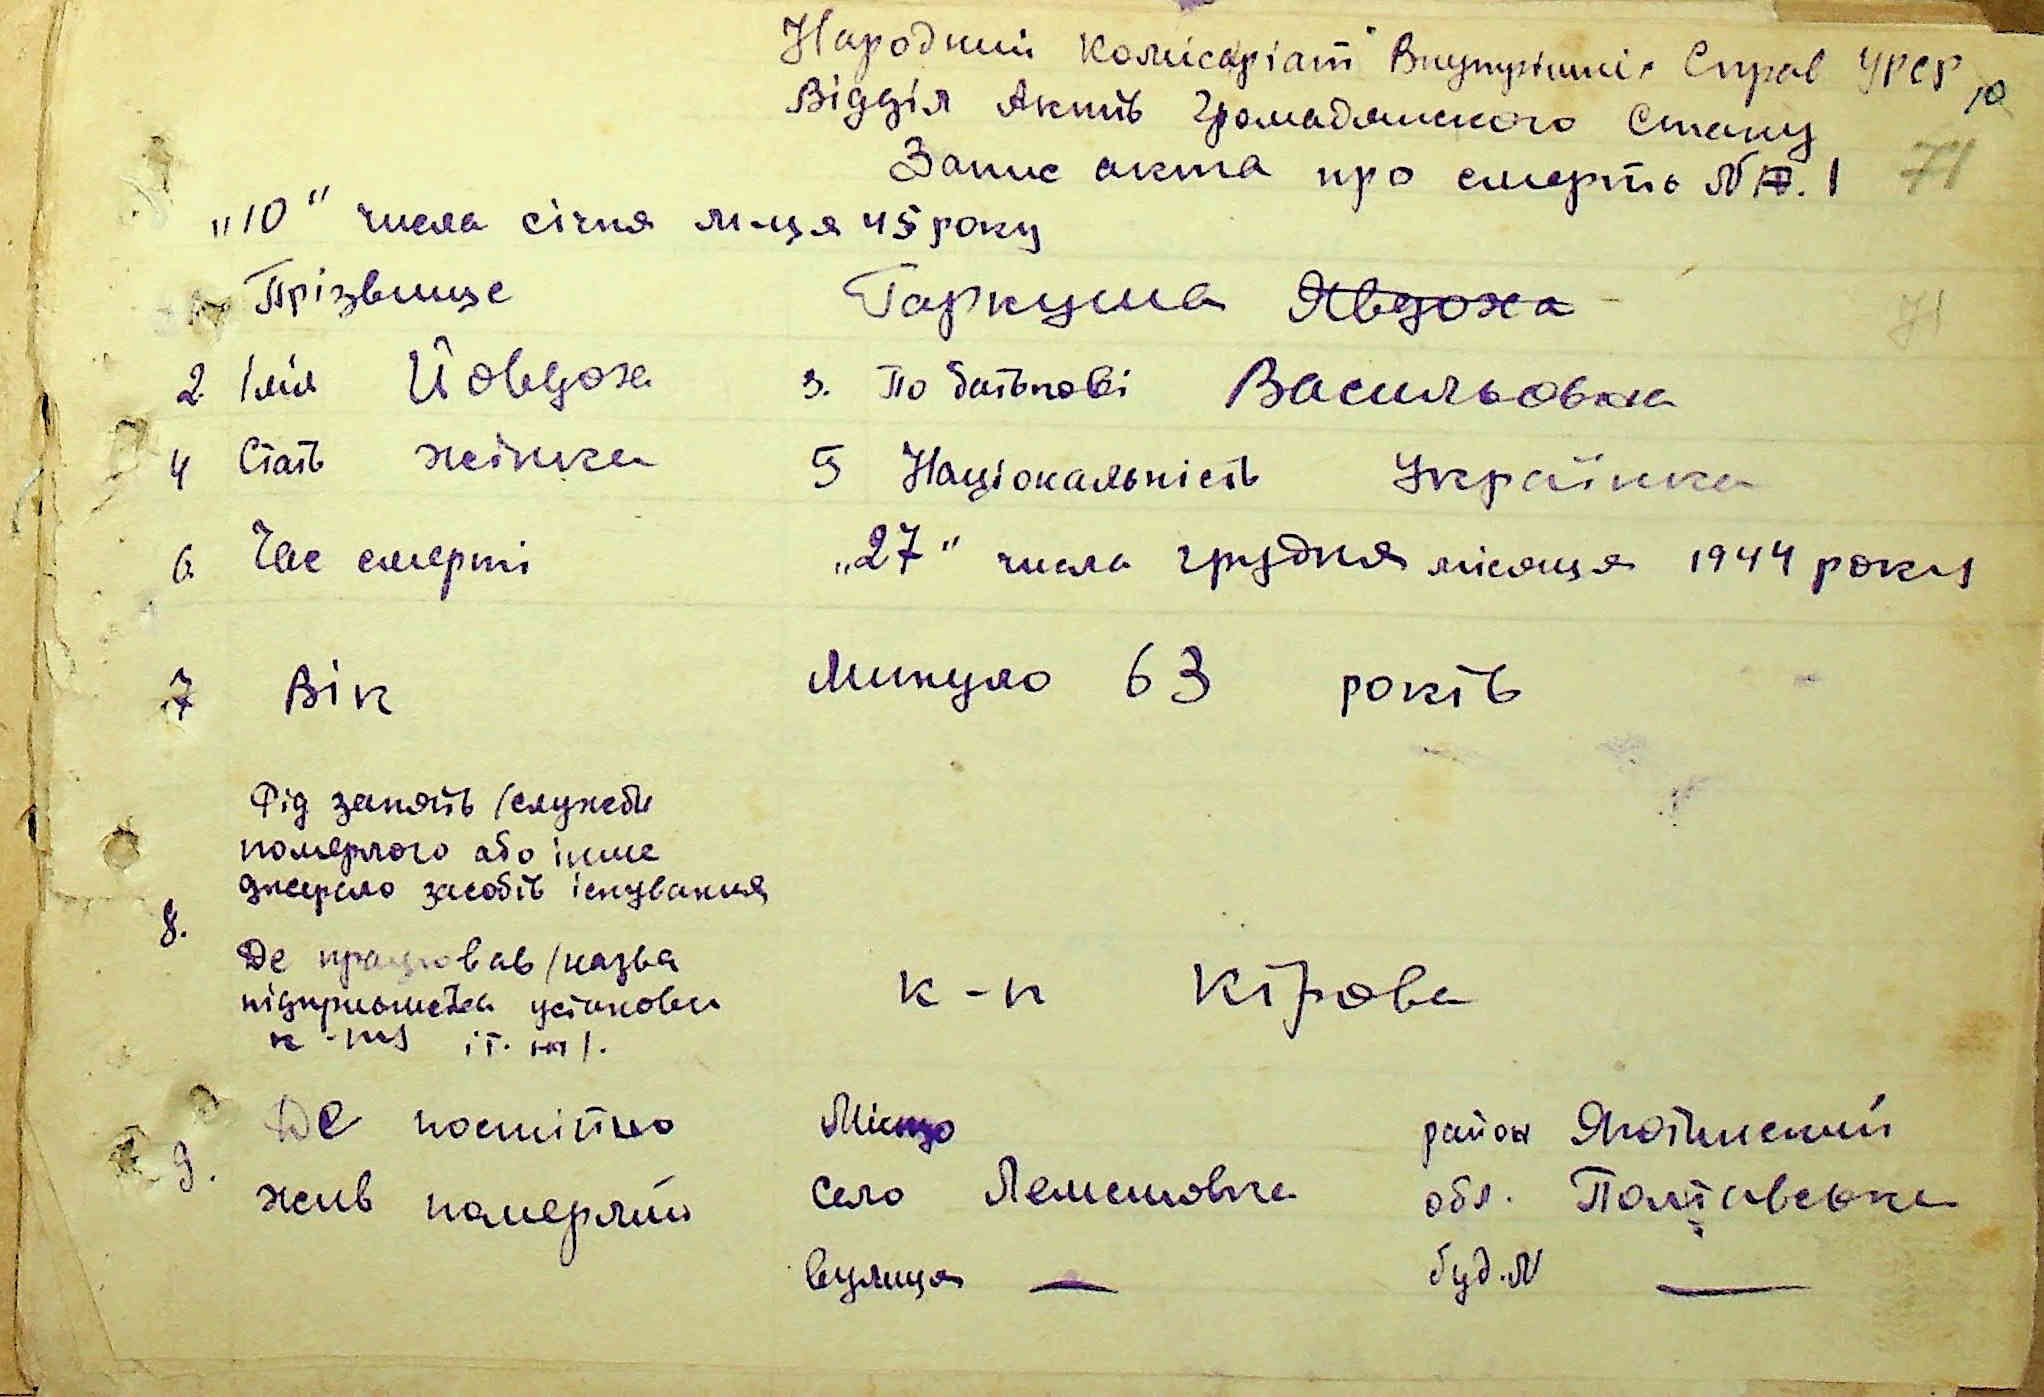 Народний Комісаріат Внутрішніх Справ УРСР
Відділ Актів Громадянского Стану
Запис акта про смерть №1 71
„10“ числа січня м-ця 45 року
Прізвище Гаркуша Явдоха
71
2 Імя Йовдоха 3. По батькові Васильовна
4 Стать жінка 5 Національність Українка
6. Час смерті „27“ числа грудня місяця 1944 року
7 Вік Минуло 63 років
Рід занять /служби
померлого або інше
джерело засобів існування
8.
Де працював /назва
підприємства установи
к-п і т. /. к-п Кірова
9. Де постійно Місцо район Яготинский
жив померлий село Лемешовка обл. Полтавська
вулиця — буд. № —